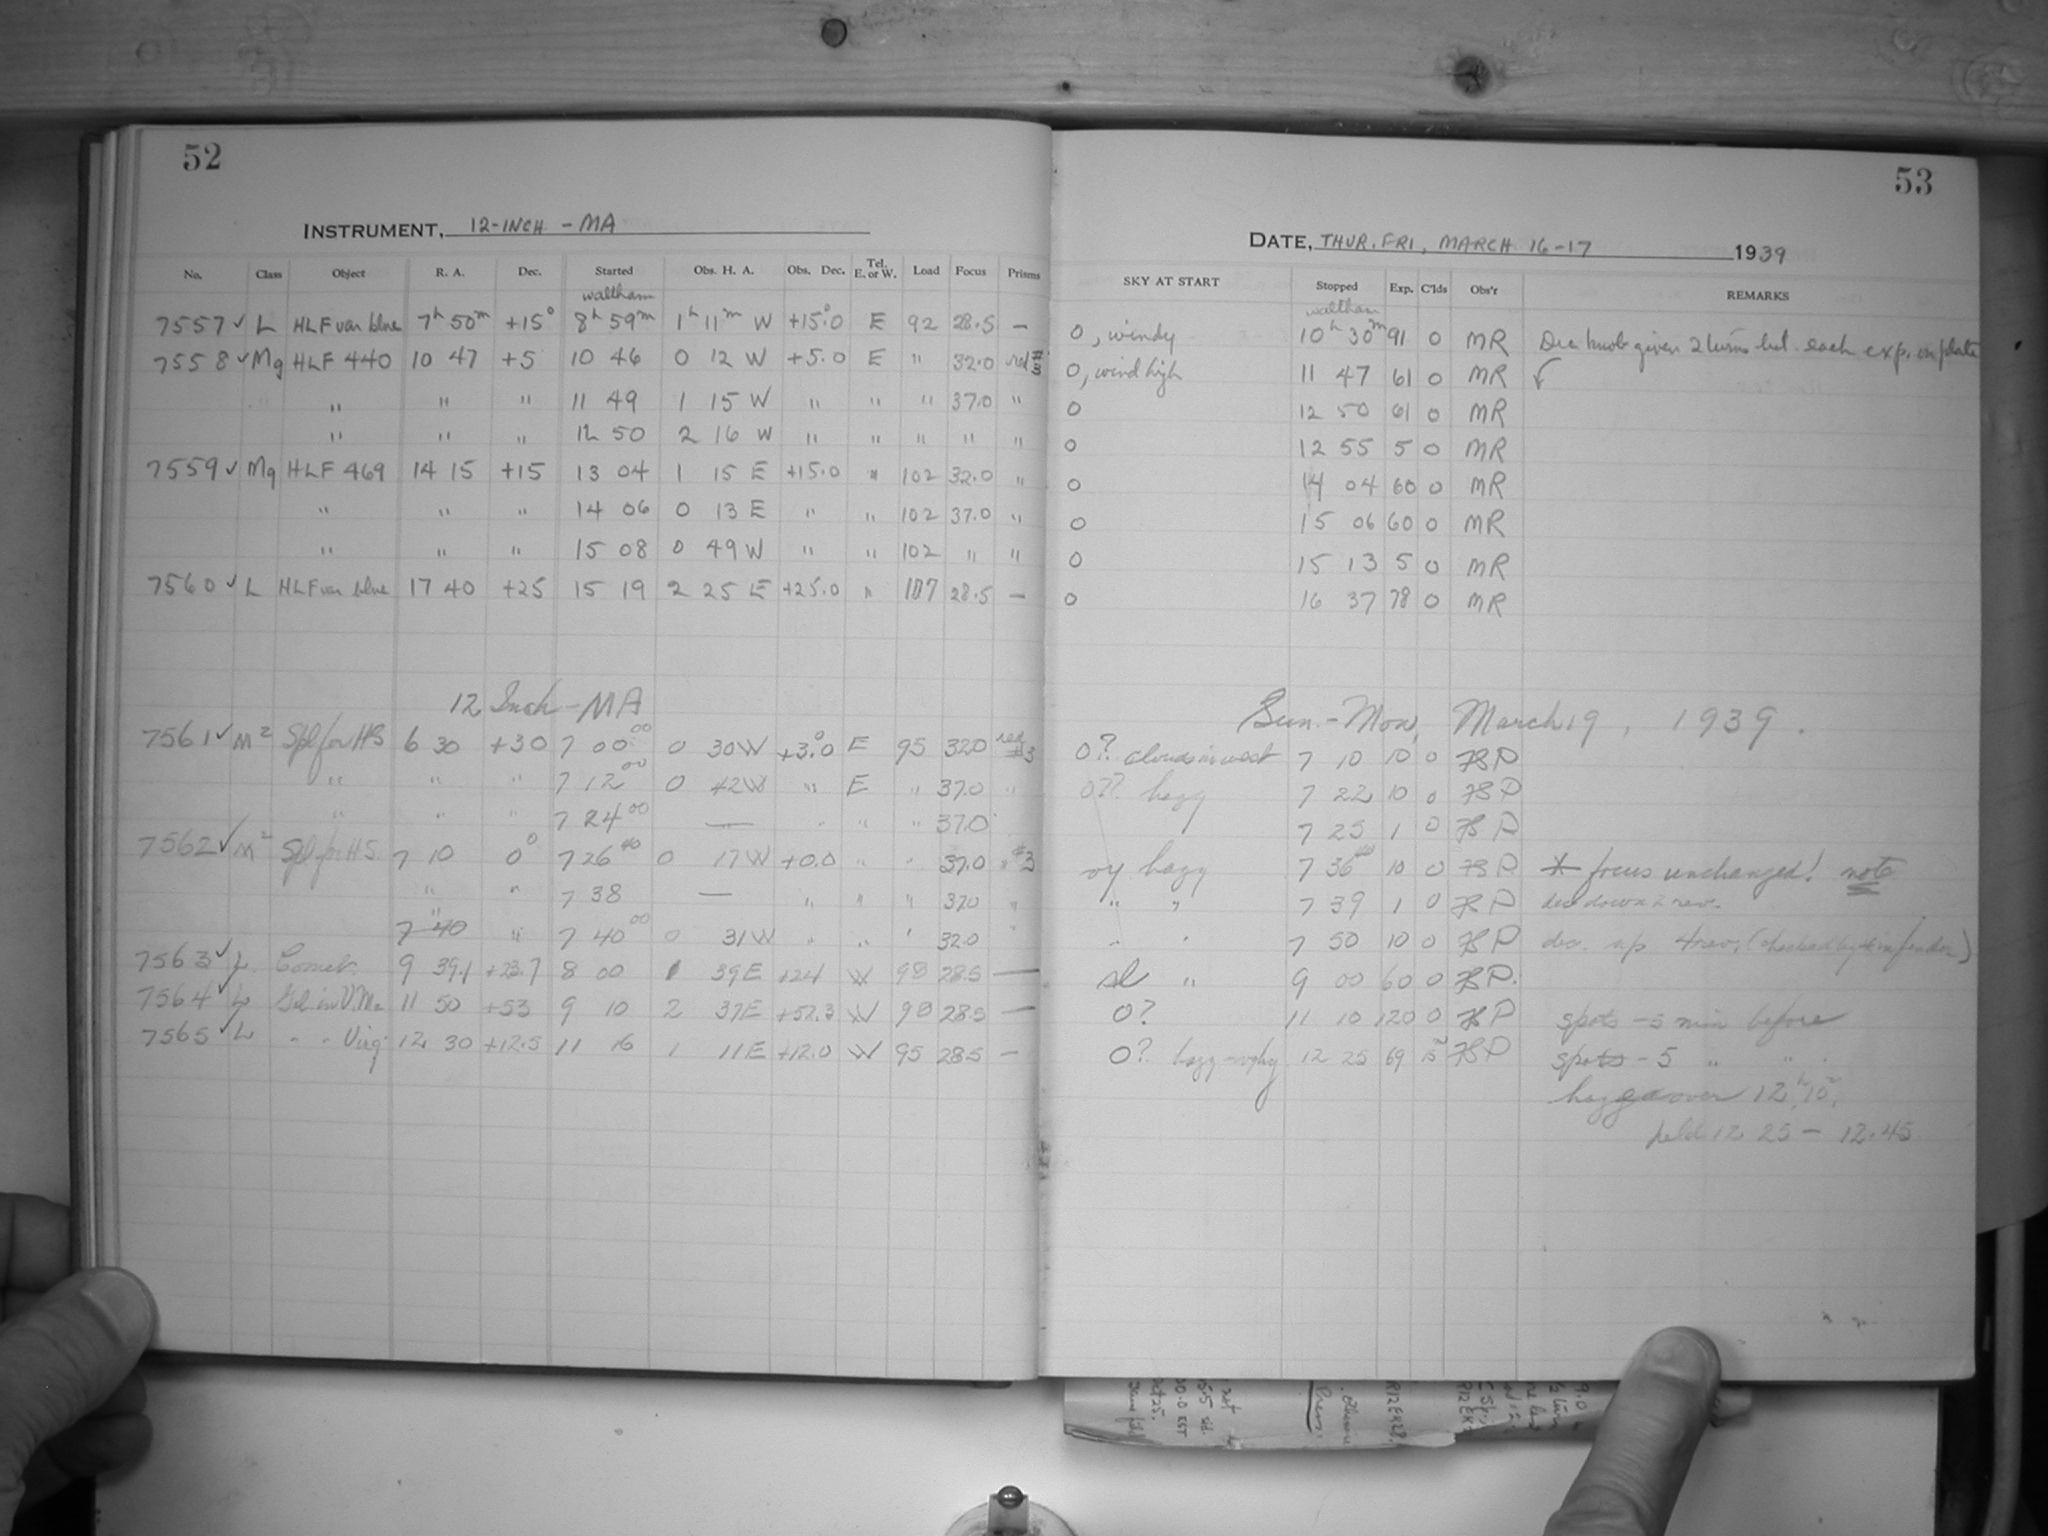 52
INSTRUMENT, 12-INCH - MA
No. Class Object R. A. Dec. Started Obs. H. A. Obs. Dec. Tel. E. or W. Load Focus Prisms
waltham
7557 ✓ L HLF var blue 7h 50m +15° 8h 59m 1h 11m W +15.°0 E 92 28.5 —
7558 ✓ Mg HLF 440 10 47 +5 10 46 0 12 W +5.0 E " 32.0 red #3
" " " 11 49 1 15 W " " " 37.0 "
" " " 12 50 2 16 W " " " " "
7559 ✓ Mg HLF 469 14 15 +15 13 04 1 15 E +15.0 " 102 32.0 "
" " " 14 06 0 13 E " " 102 37.0 "
" " " 15 08 0 49 W " " 102 " "
7560 ✓ L HLF var blue 17 40 +25 15 19 2 25 E +25.0 " 107 28.5 —
12 Inch - MA
7561 ✓ M2 Spl for HS 6 30 +30 7 00 00 0 30 W +3.°0 E 95 32.0 red #3
" " " 7 12 00 0 42 W " E " 37.0 "
" " " 7 24 00 — " " " 37.0
7562 ✓ M2 Spl for HS 7 10 0° 7 26 40 0 17 W +0.0 " " 37.0 " #3
" " 7 38 — " " " 37.0 "
7 40 " 7 40 00 0 31 W " " " 32.0 "
7563 ✓ L Comet 9 39.1 +23.7 8 00 1 39 E +24 W 98 28.5 —
7564 ✓ L Gal in U.Ma 11 50 +53 9 10 2 37 E +52.3 W 98 28.5 —
7565 ✓ L " " Virg 12 30 +12.5 11 16 1 11 E +12.0 W 95 28.5 —
53
DATE, THUR. FRI, MARCH 16-17 1939
SKY AT START Stopped Exp. C'lds Obs'r REMARKS
waltham
0, windy 10h 30m 91 0 MR Dec knob given 2 turns bet. each exp. on plate
0, wind high 11 47 61 0 MR
0 12 50 61 0 MR
0 12 55 5 0 MR
0 14 04 60 0 MR
0 15 06 60 0 MR
0 15 13 5 0 MR
0 16 37 78 0 MR
Sun. - Mon, March 19, 1939.
0? clouds in west 7 10 10 0
0?? hazy 7 22 10 0
7 25 1 0
hazy 7 36 40 10 0 * focus unchanged! note
" " 7 39 1 0 dec down 2 rev.
" " 7 50 10 0 dec. up 4 rev.
sl " 9 00 60 0
0? 11 10 120 0 spots - 5 min before
0? hazy 12 25 69 spots - 5 " "
12h 15m
held 12 25 - 12.45